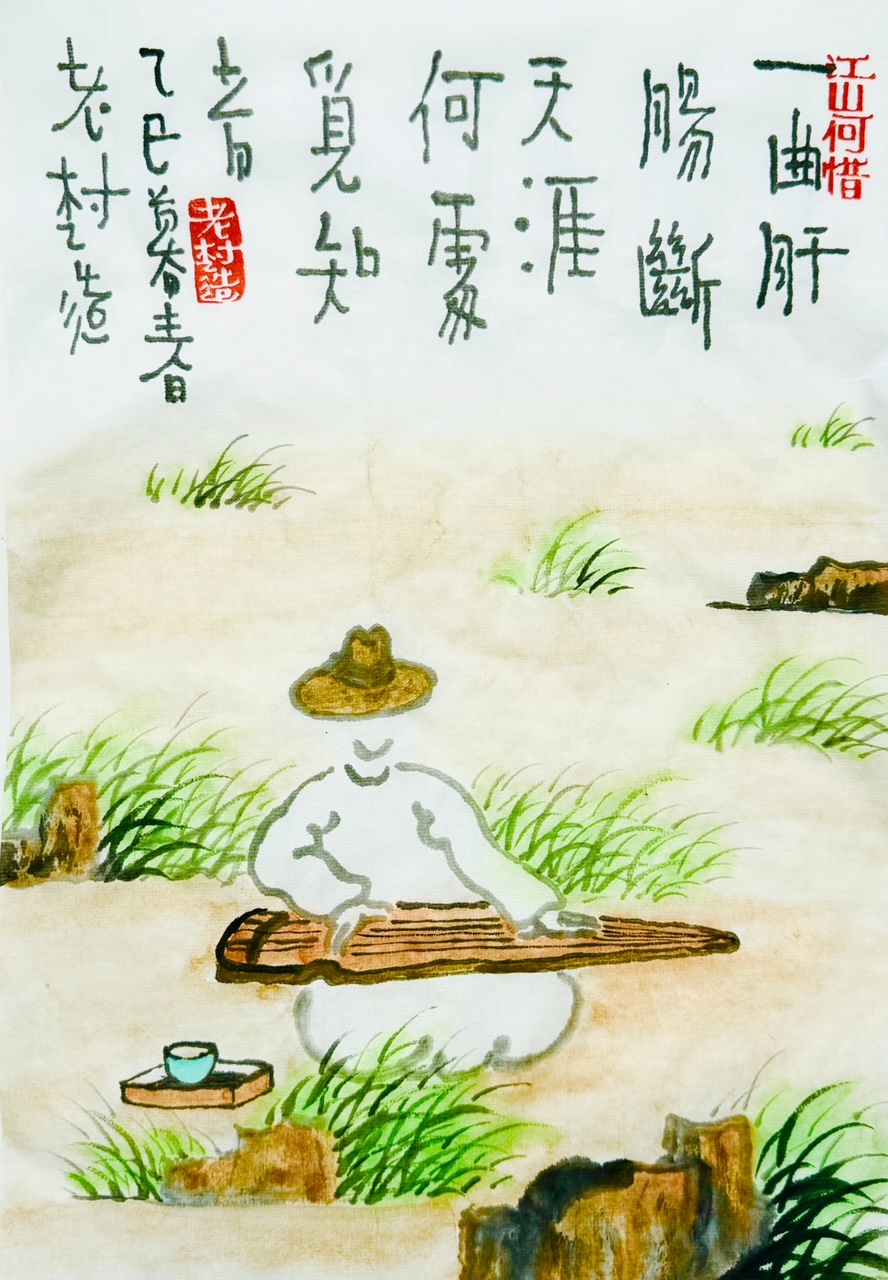 江山何惜
一曲肝
腸斷
天涯
何處
覓知
音
乙巳暮春
老村造
老村造